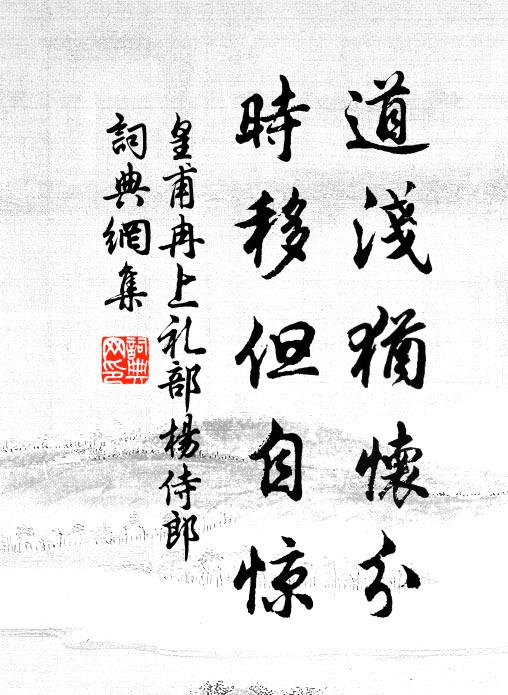 道淺猶懷分
時移但自惊
皇甫冉上礼部楊侍郎
詞典網集
詞典
网印